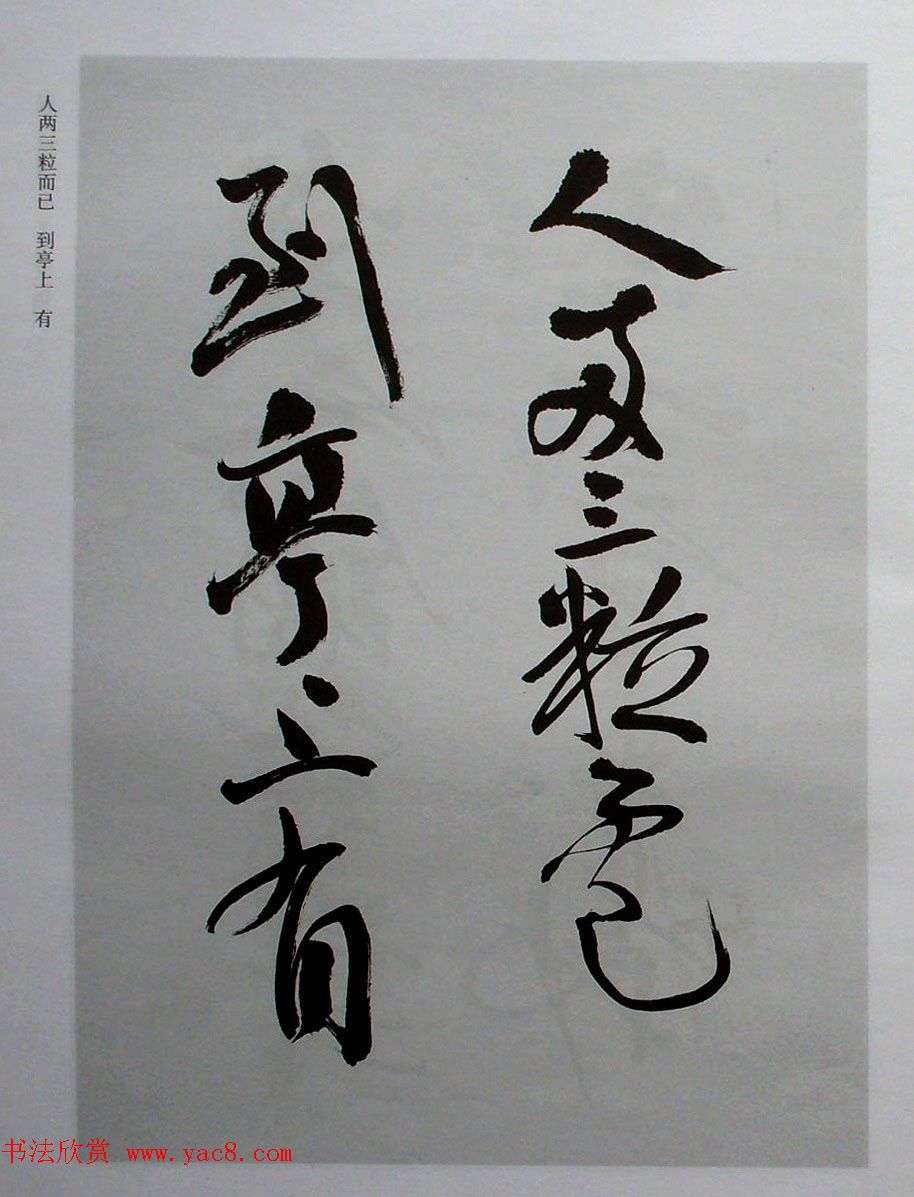 人两三粒而已
到亭上有
人两三粒而已 到亭上 有
书法欣赏 www.yac8.com